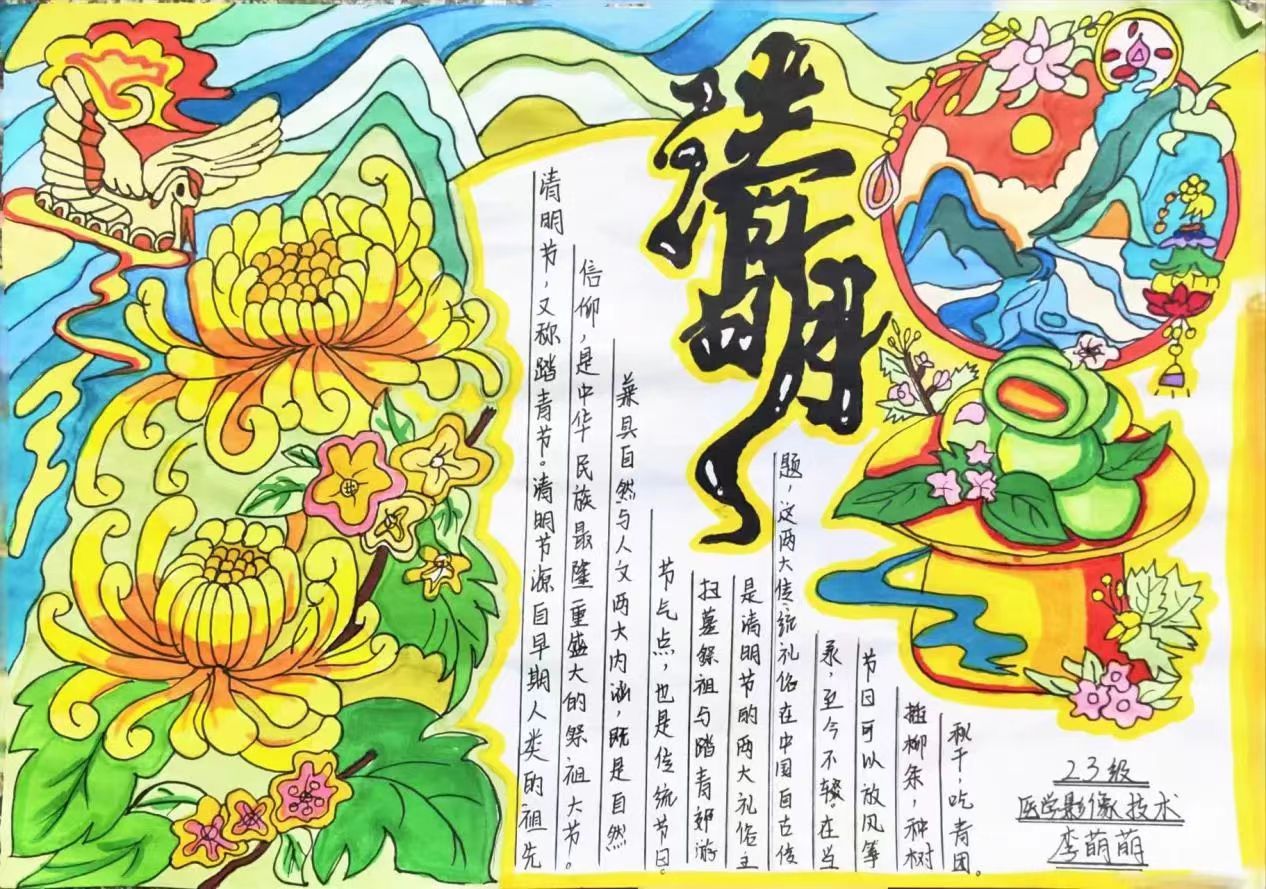 清明
清明节，又称踏青节。清明节源自早期人类的祖先
信仰，是中华民族最隆重盛大的祭祖大节。
兼具自然与人文两大内涵，既是自然
节气点，也是传统节日。
扫墓祭祖与踏青郊游
是清明节的两大礼俗主
题，这两大传统礼俗在中国自古传
承，至今不辍在当
节日可以放风筝
插柳条，种树
秋千，吃青团。
23级
医学影像技术
李萌萌